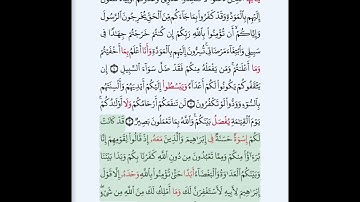 إِلَيْهِم بِالْمَوَدَّةِ وَقَدْ كَفَرُوا بِمَا جَاءَكُم مِّنَ الْحَقِّ يُخْرِجُونَ الرَّسُولَ
وَإِيَّاكُمْ أَن تُؤْمِنُوا بِاللَّهِ رَبِّكُمْ إِن كُنتُمْ خَرَجْتُمْ جِهَٰدًا فِي
سَبِيلِي وَابْتِغَاءَ مَرْضَاتِي تُسِرُّونَ إِلَيْهِم بِالْمَوَدَّةِ وَأَنَا أَعْلَمُ بِمَا أَخْفَيْتُمْ
وَمَا أَعْلَنتُمْ وَمَن يَفْعَلْهُ مِنكُمْ فَقَدْ ضَلَّ سَوَاءَ السَّبِيلِ ١ إِن
يَثْقَفُوكُمْ يَكُونُوا لَكُمْ أَعْدَاءً وَيَبْسُطُوا إِلَيْكُمْ أَيْدِيَهُمْ وَأَلْسِنَتَهُم
بِالسُّوءِ وَوَدُّوا لَوْ تَكْفُرُونَ ٢ لَن تَنفَعَكُمْ أَرْحَامُكُمْ وَلَا أَوْلَٰدُكُمْ
يَوْمَ الْقِيَٰمَةِ يُفْصَلُ بَيْنَكُمْ وَاللَّهُ بِمَا تَعْمَلُونَ بَصِيرٌ ٣ قَدْ كَانَتْ
لَكُمْ إِسْوَةٌ حَسَنَةٌ فِي إِبْرَٰهِيمَ وَالَّذِينَ مَعَهُ إِذْ قَالُوا لِقَوْمِهِمْ إِنَّا
بُرَءَٰؤُا مِنكُمْ وَمِمَّا تَعْبُدُونَ مِن دُونِ اللَّهِ كَفَرْنَا بِكُمْ وَبَدَا بَيْنَنَا
وَبَيْنَكُمُ الْعَدَٰوَةُ وَالْبَغْضَاءُ أَبَدًا حَتَّىٰ تُؤْمِنُوا بِاللَّهِ وَحْدَهُ إِلَّا قَوْلَ
إِبْرَٰهِيمَ لِأَبِيهِ لَأَسْتَغْفِرَنَّ لَكَ وَمَا أَمْلِكُ لَكَ مِنَ اللَّهِ مِن شَيْءٍ